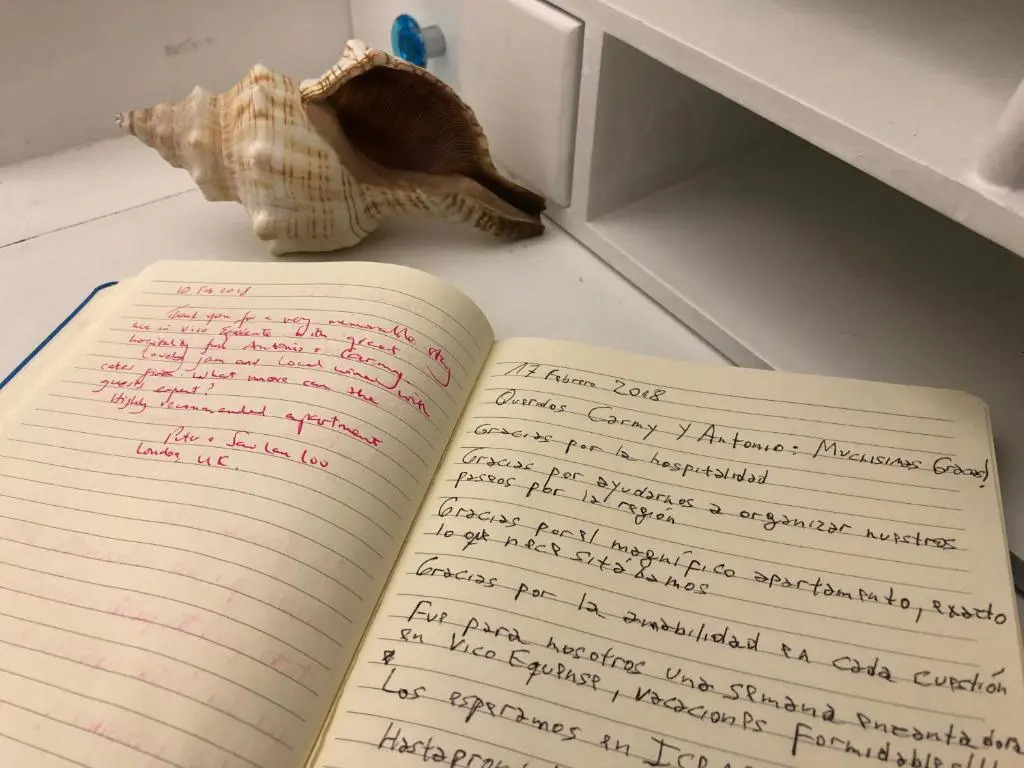 10 Feb 2018
Thank you for a very memorable stay
here in Vico Equense with great
hospitality from Antonio + Carmy.
Lovely jam and local wine, with
cater . What more can the
guests expect?
Highly recommended apartment
Peter + San Lan Loo
London, UK.
17 Febrero 2018
Queridos Carmy y Antonio: Muchisimas Gracias!
Gracias por la hospitalidad
Gracias por ayudarnos a organizar nuestros
paseos por la región
Gracias por el magnífico apartamento, exacto
lo que necesitabamos
Gracias por la amabilidad en cada cuestión
Fue para nosotros una semana encantadora
en Vico Equense, vacaciones formidables!!!
Los esperamos en
Hasta